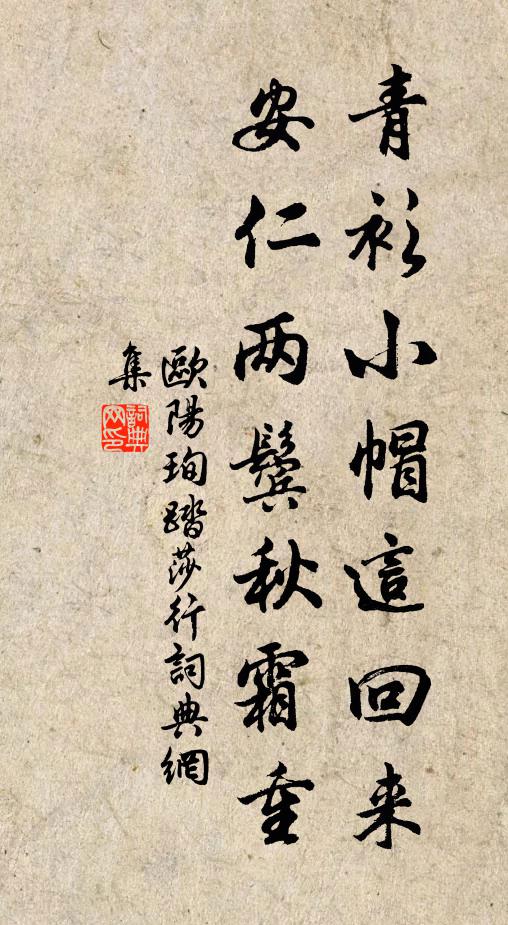 青衫小帽這回来
安仁两鬓秋霜重
歐陽珣踏莎行詞典網
集
詞典網印